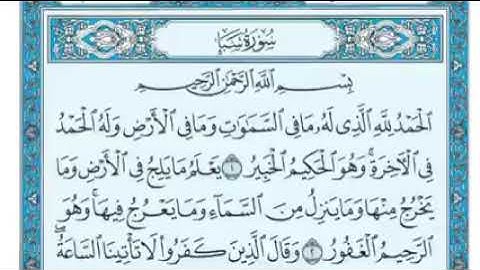 سُورَةُ سَبَإٍ
بِسْمِ ٱللَّهِ ٱلرَّحْمَٰنِ ٱلرَّحِيمِ
ٱلْحَمْدُ لِلَّهِ ٱلَّذِى لَهُۥ مَا فِى ٱلسَّمَٰوَٰتِ وَمَا فِى ٱلْأَرْضِ وَلَهُ ٱلْحَمْدُ
فِى ٱلْءَاخِرَةِۚ وَهُوَ ٱلْحَكِيمُ ٱلْخَبِيرُ ١ يَعْلَمُ مَا يَلِجُ فِى ٱلْأَرْضِ وَمَا
يَخْرُجُ مِنْهَا وَمَا يَنزِلُ مِنَ ٱلسَّمَآءِ وَمَا يَعْرُجُ فِيهَاۚ وَهُوَ
ٱلرَّحِيمُ ٱلْغَفُورُ ٢ وَقَالَ ٱلَّذِينَ كَفَرُوا۟ لَا تَأْتِينَا ٱلسَّاعَةُۖ